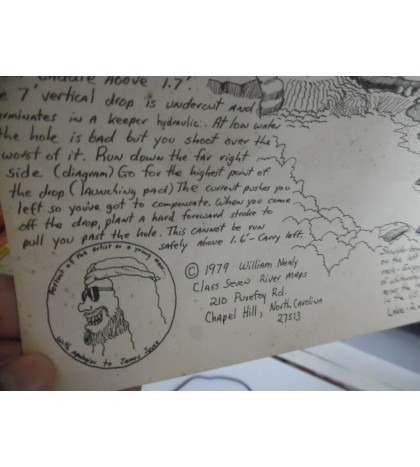 above 1.7'.
7' vertical drop is undercut and
in a keeper hydraulic. At low water
the hole is bad but you shoot over the
worst of it. Run down the far right
side (diagram) Go for the highest point of
the drop (launching pad) The current pushes you
left so you've got to compensate. When you come
off the drop, plant a hard forward stroke to
pull you past the hole. This cannot be run
safely above 1.6'- Carry left.
Portrait of the artist as a young man
With Apologies to James Joyce
© 1979 William Nealy
Class Seven River Maps
210 Purefoy Rd.
Chapel Hill, North Carolina
27513